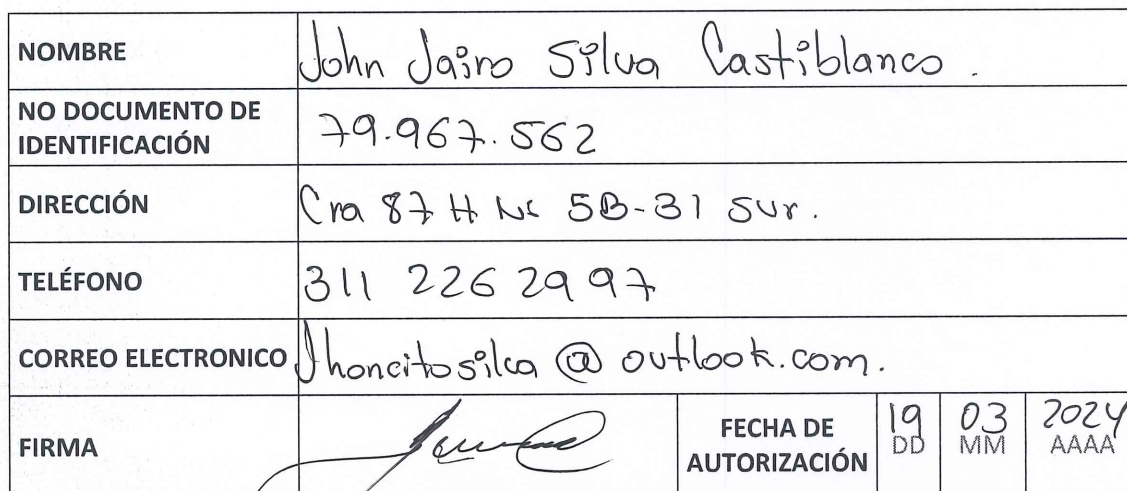 NOMBRE John Jairo Silva Castiblanco.
NO DOCUMENTO DE
IDENTIFICACIÓN 79.967.562
DIRECCIÓN Cra 87 H Nº 5B-31 Sur.
TELÉFONO 311 226 29 97
CORREO ELECTRONICO Jhoncitosilva @ outlook.com.
FIRMA
FECHA DE
AUTORIZACIÓN
19 03 2024
DD MM AAAA